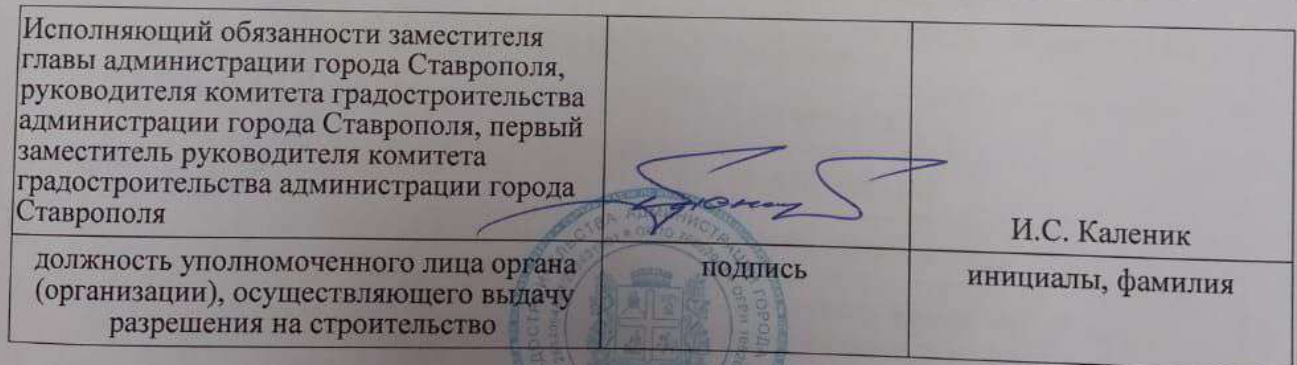 Исполняющий обязанности заместителя
главы администрации города Ставрополя,
руководителя комитета градостроительства
администрации города Ставрополя, первый
заместитель руководителя комитета
градостроительства администрации города
Ставрополя
И.С. Каленик
должность уполномоченного лица органа
(организации), осуществляющего выдачу
разрешения на строительство
подпись
инициалы, фамилия